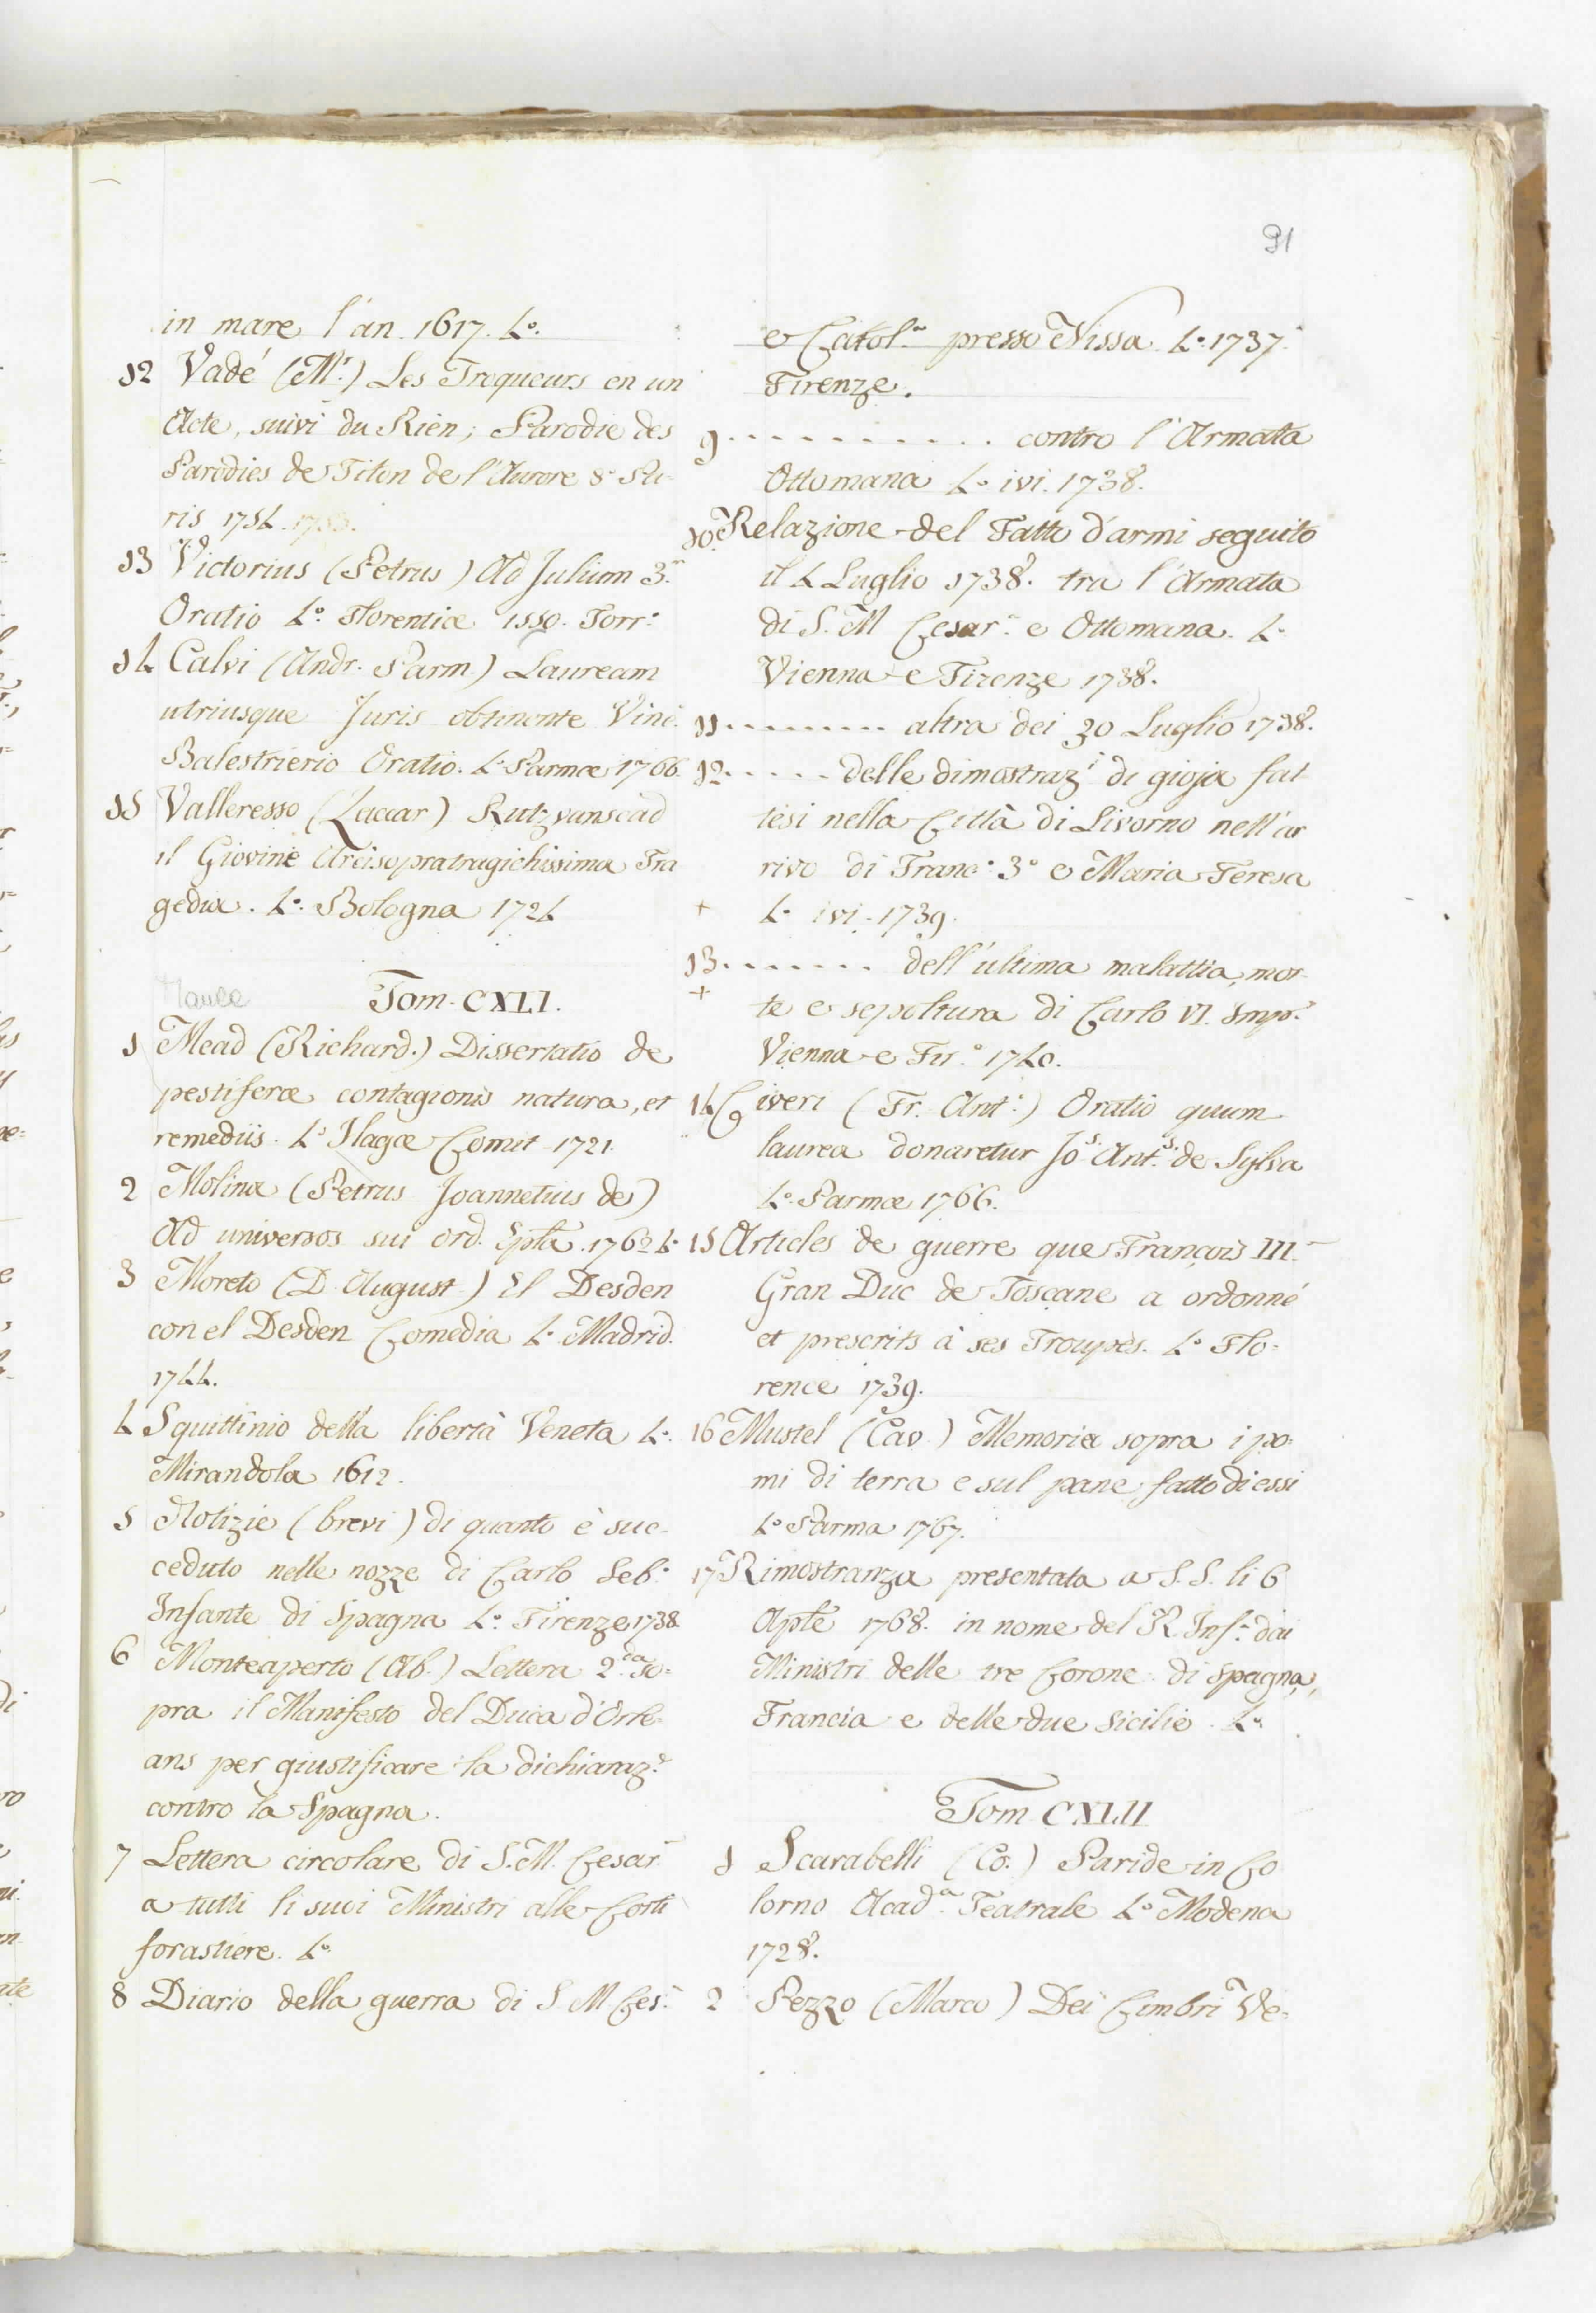 91
in mare l'an. 1617. 4.o
12 Vadé (M.r) Les Troqueurs en un
Acte, suivi du Rien; Parodie des
Parodies de Titon de l'Aurore 8.o Pa-
ris 1754. 1753.
13 Victorius (Petrus) Ad Julium 3.m
Oratio 4.o Florentiæ 1550. Torr.o
14 Calvi (Andr. Parm.) Lauream
utriusque Juris obtinente Vinc.
Balestrierio Oratio. 4.o Parmæ 1766.
15 Valleresso (Zaccar) Rutzvanscad
il Giovine Arcisopratragichissima Tra
gedia. 4.o Bologna 1724
Manca
Tom. CXLI.
1 Mead (Richard.) Dissertatio de
pestiferæ contagionis natura, et
remediis. 4.o Hagæ Comit. 1721.
2 Molina (Petrus Joannetius de)
Ad universos sui ord. Epla. 1762 4.o
3 Moreto (D. August.) El Desden
con el Desden Comedia 4.o Madrid.
1744.
4 Squittinio della libertà Veneta 4.o
Mirandola 1612.
5 Notizie (brevi) di quanto è suc-
ceduto nelle nozze di Carlo Seb.o
Infante di Spagna 4.o Firenze 1738.
6 Monteaperto (Ab.) Lettera 2.da so-
pra il Manifesto del Duca d'Orle-
ans per giustificare la dichiaraz.e
contro la Spagna.
7 Lettera circolare di S. M. Cesar.
a tutti li suoi Ministri alle Corti
forastiere. 4.o
8 Diario della guerra di S. M. Ces.a
e Catol.a presso Nissa. 4.o 1737.
Firenze.
9 . . . . . . . . . . . contro l'Armata
Ottomana 4.o ivi. 1738.
10 Relazione del Fatto d'armi seguito
il 4 Luglio 1738. tra l'Armata
di S. M. Cesar.a e Ottomana. 4.o
Vienna e Firenze 1738.
11 . . . . . . . . altra dei 30 Luglio 1738.
12 . . . . . delle dimostraz.i di gioja fat
tesi nella Città di Livorno nell'ar
rivo di Franc.o 3.o e Maria Teresa
+ 4.o ivi. 1739.
13 . . . . . . . dell'ultima malattia, mor-
+ te e sepoltura di Carlo VI. Imp.e
Vienna e Fir.e 1740.
14 Civeri (Fr. Ant.) Oratio quum
laurea donaretur Jo.s Ant.s de Sylva
4.o Parmæ 1766.
15 Articles de guerre que François III.
Gran Duc de Toscane a ordonné
et prescrits à ses Troupes. 4.o Flo-
rence 1739.
16 Mustel (Cav.) Memoria sopra i po-
mi di terra e sul pane fatto di essi
4.o Parma 1767.
17 Rimostranza presentata a S. S. li 6
Aple 1768. in nome del R. Inf.e dai
Ministri delle tre Corone di Spagna,
Francia e delle due Sicilie. 4.o
Tom. CXLII
1 Scarabelli (Co.) Paride in Co
lorno Acad.a Teatrale 4.o Modena
1728.
2 Pezzo (Marco) Dei Cimbri Ve-